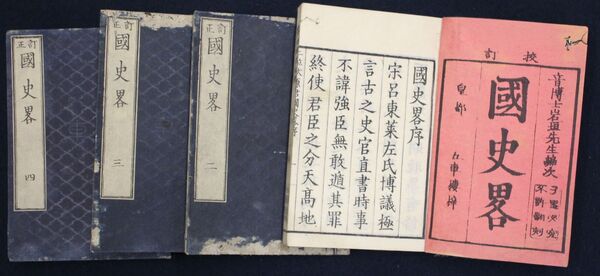 挍訂
音博士岩垣先生編次
不許翻刻
國史畧
皇都
五車樓梓
國史畧序
宋呂東萊左氏博議極
言古之史官直書時事
不諱強臣無敢遁其罪
終使君臣之分天高地
訂正
國史畧
二
訂正
國史畧
三
訂正
國史畧
四